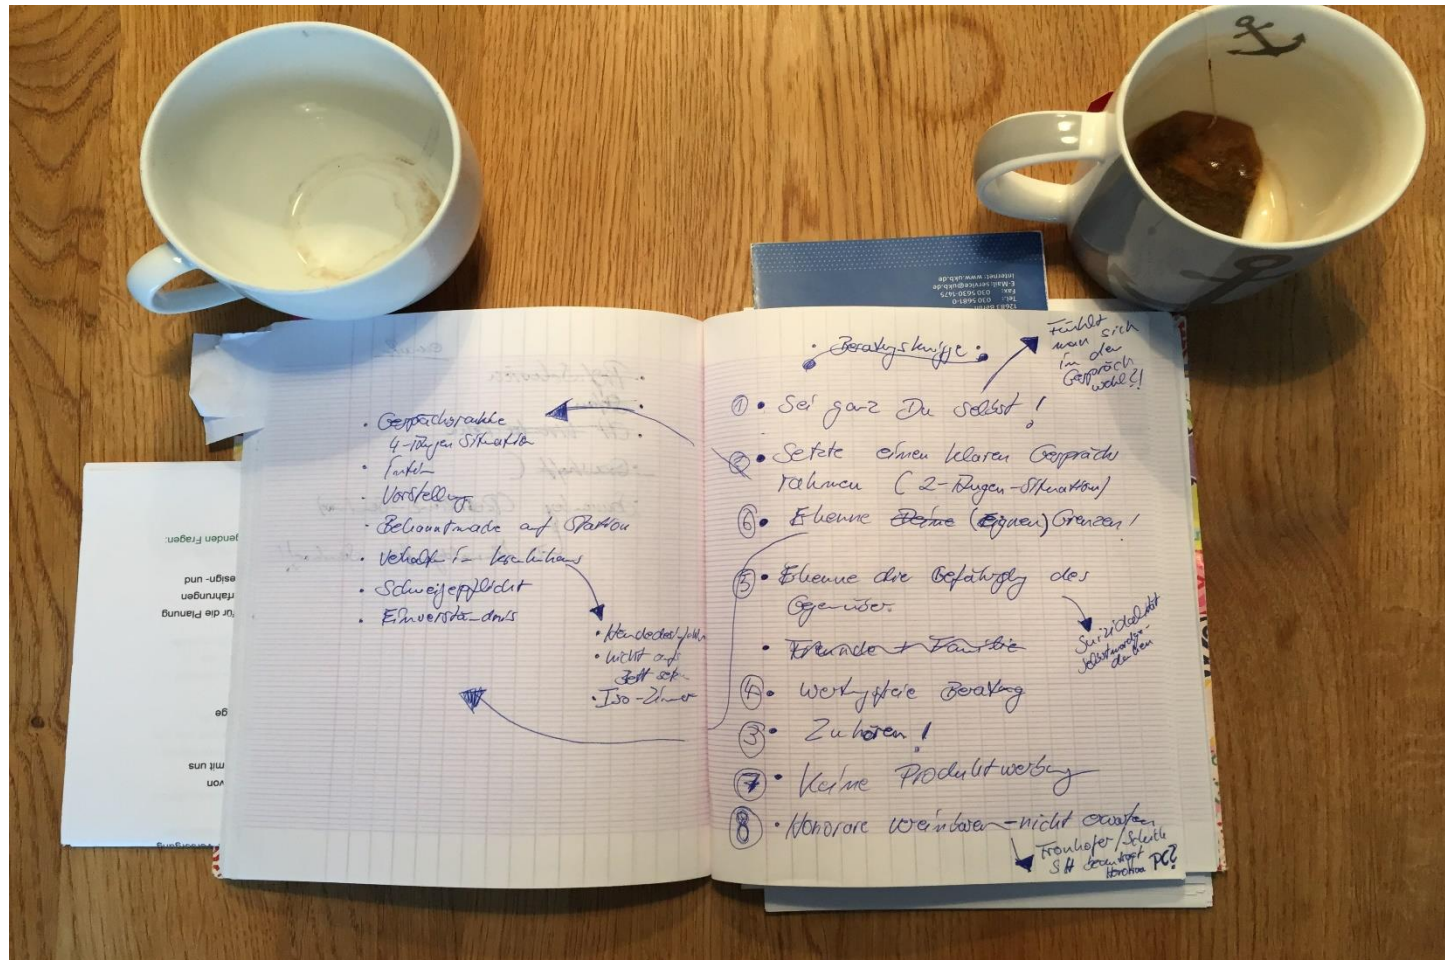 Gesprächsrahmen
4-Augen Situation
Vorstellung
Bekanntmache auf Station
Verhalten im Krankenhaus
Schweigepflicht
Einverständnis
Händedesinfektion
nicht aufs
Bett setzen
Iso-Zimmer
Beratungsknigge
Fühlt
man sich
in dem
Gespräch
wohl?!
① Sei ganz Du selbst!
② Setzte einen klaren Gesprächs
rahmen (2-Augen-Situation)
⑥ Erkenne Deine (Eignen) Grenzen!
⑤ Erkenne die Gefährdung des
Gegenüber.
Suizidalität
Selbstmordge-
danken
Freunde + Familie
④ Wertungsfreie Beratung
③ Zuhören!
⑦ Keine Produktwerbung
⑧ Honorare vereinbaren - nicht erwarten
SH beantragt
PC?
Internet: www.ukb.de
E-Mail: service@ukb.de
Fax: 030 5630-1475
Tel.: 030 5681-0
12683 Berlin
genden Fragen:
esign- und
rfahrungen
für die Planung
ge
mit uns
von